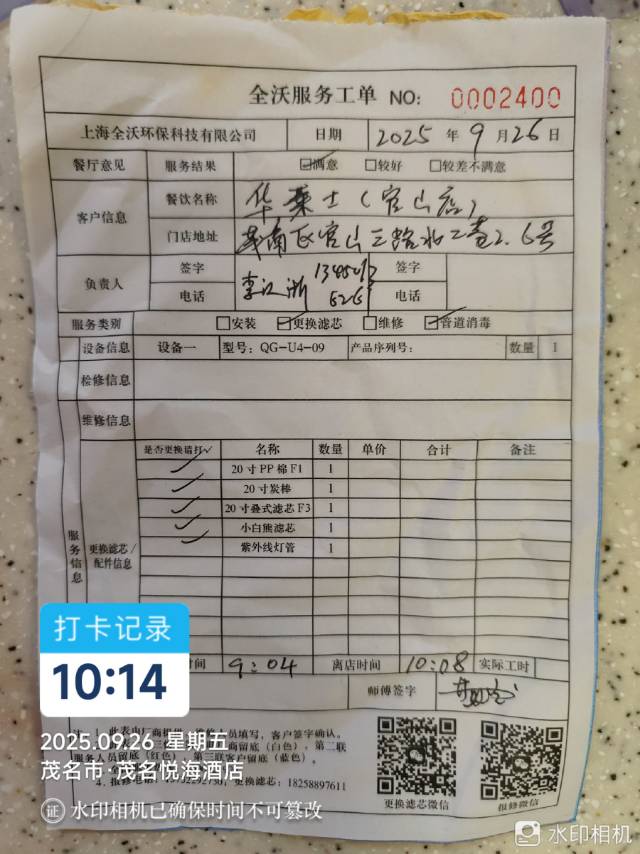 全沃服务工单 NO: 0002400
上海全沃环保科技有限公司 日期 2025 年 9 月 26 日
餐厅意见 服务结果 满意 较好 较差不满意
客户信息 餐饮名称 华莱士(官山店)
门店地址 茂南区官山三路 2.6号
负责人 签字 签字
电话 电话
服务类别 安装 更换滤芯 维修 管道消毒
设备信息 设备一 型号: QG-U4-09 产品序列号: 数量 1
检修信息
维修信息
服务信息
更换滤芯/配件信息
是否更换请打√ 名称 数量 单价 合计 备注
20寸PP棉F1 1
20寸炭棒 1
20寸叠式滤芯F3 1
小白熊滤芯 1
紫外线灯管 1
时间 9:04 离店时间 10:08 实际工时
师傅签字
打卡记录
10:14
此表由厂商 员填写,客户签字确认。
商留底(白色),第二联
服务人员留底(红色),第三联客户留底(蓝色)。
4.报修电话: 更换滤芯: 18258897611
更换滤芯微信 报修微信
2025.09.26 星期五
茂名市·茂名悦海酒店
证 水印相机已确保时间不可篡改
水印相机